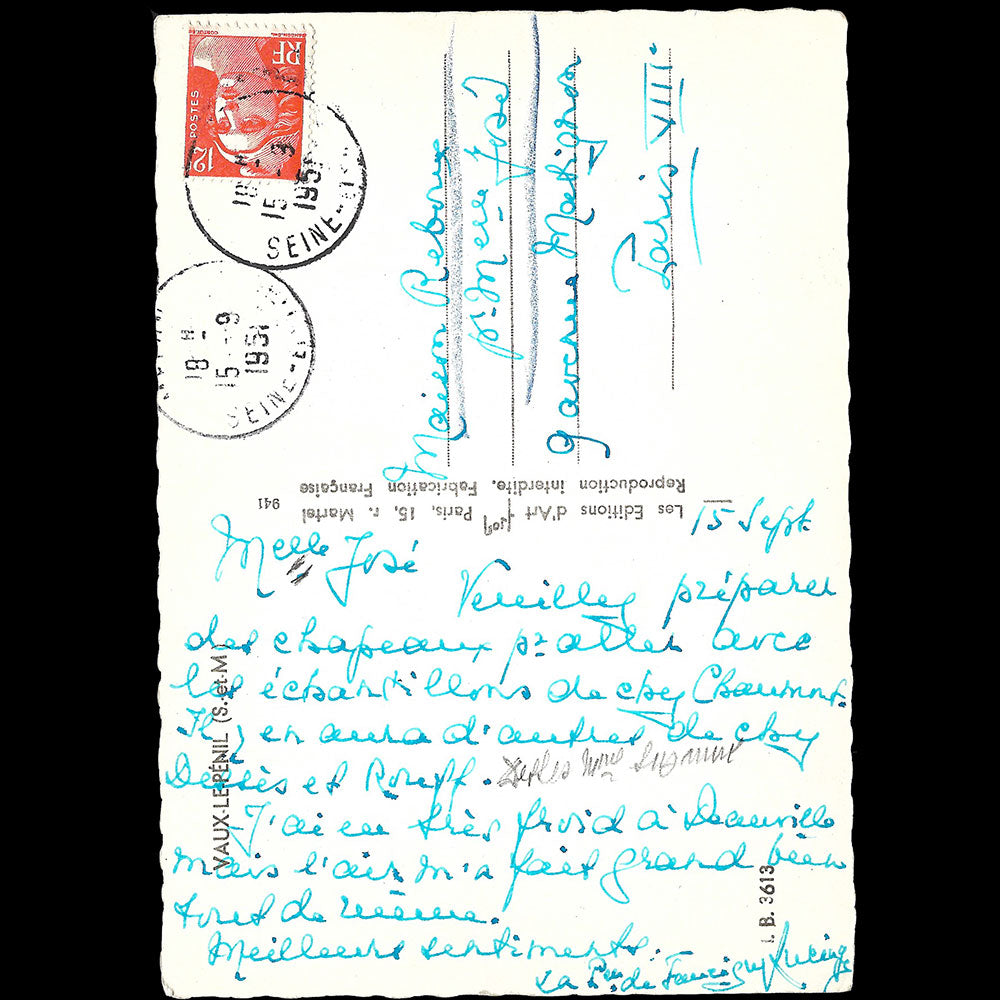 RF
POSTES
12F
18 H
15 - 9
1951
SEINE-ET-
18 H
15 - 9
1951
SEINE-ET-
Maison Reboux
pr Melle José
9 avenue Matignon
Paris VIII
Les Editions d'Art Yvon Paris, 15, r. Martel
Reproduction interdite. Fabrication Française
941
15 Sept.
Melle José
Veuillez préparer
des chapeaux pr aller avec
les échantillons de chez Chaumont.
Il y en aura d'autres de chez
Dessès et Rouff. Mme Suzanne
J'ai eu très froid à Deauville
mais l'air m'a fait grand bien
tout de même.
Meilleurs sentiments. -
La Psse de Faucigny Lucinge
VAUX-LE-PÉNIL (S.-et-M.)
I. B. 3613